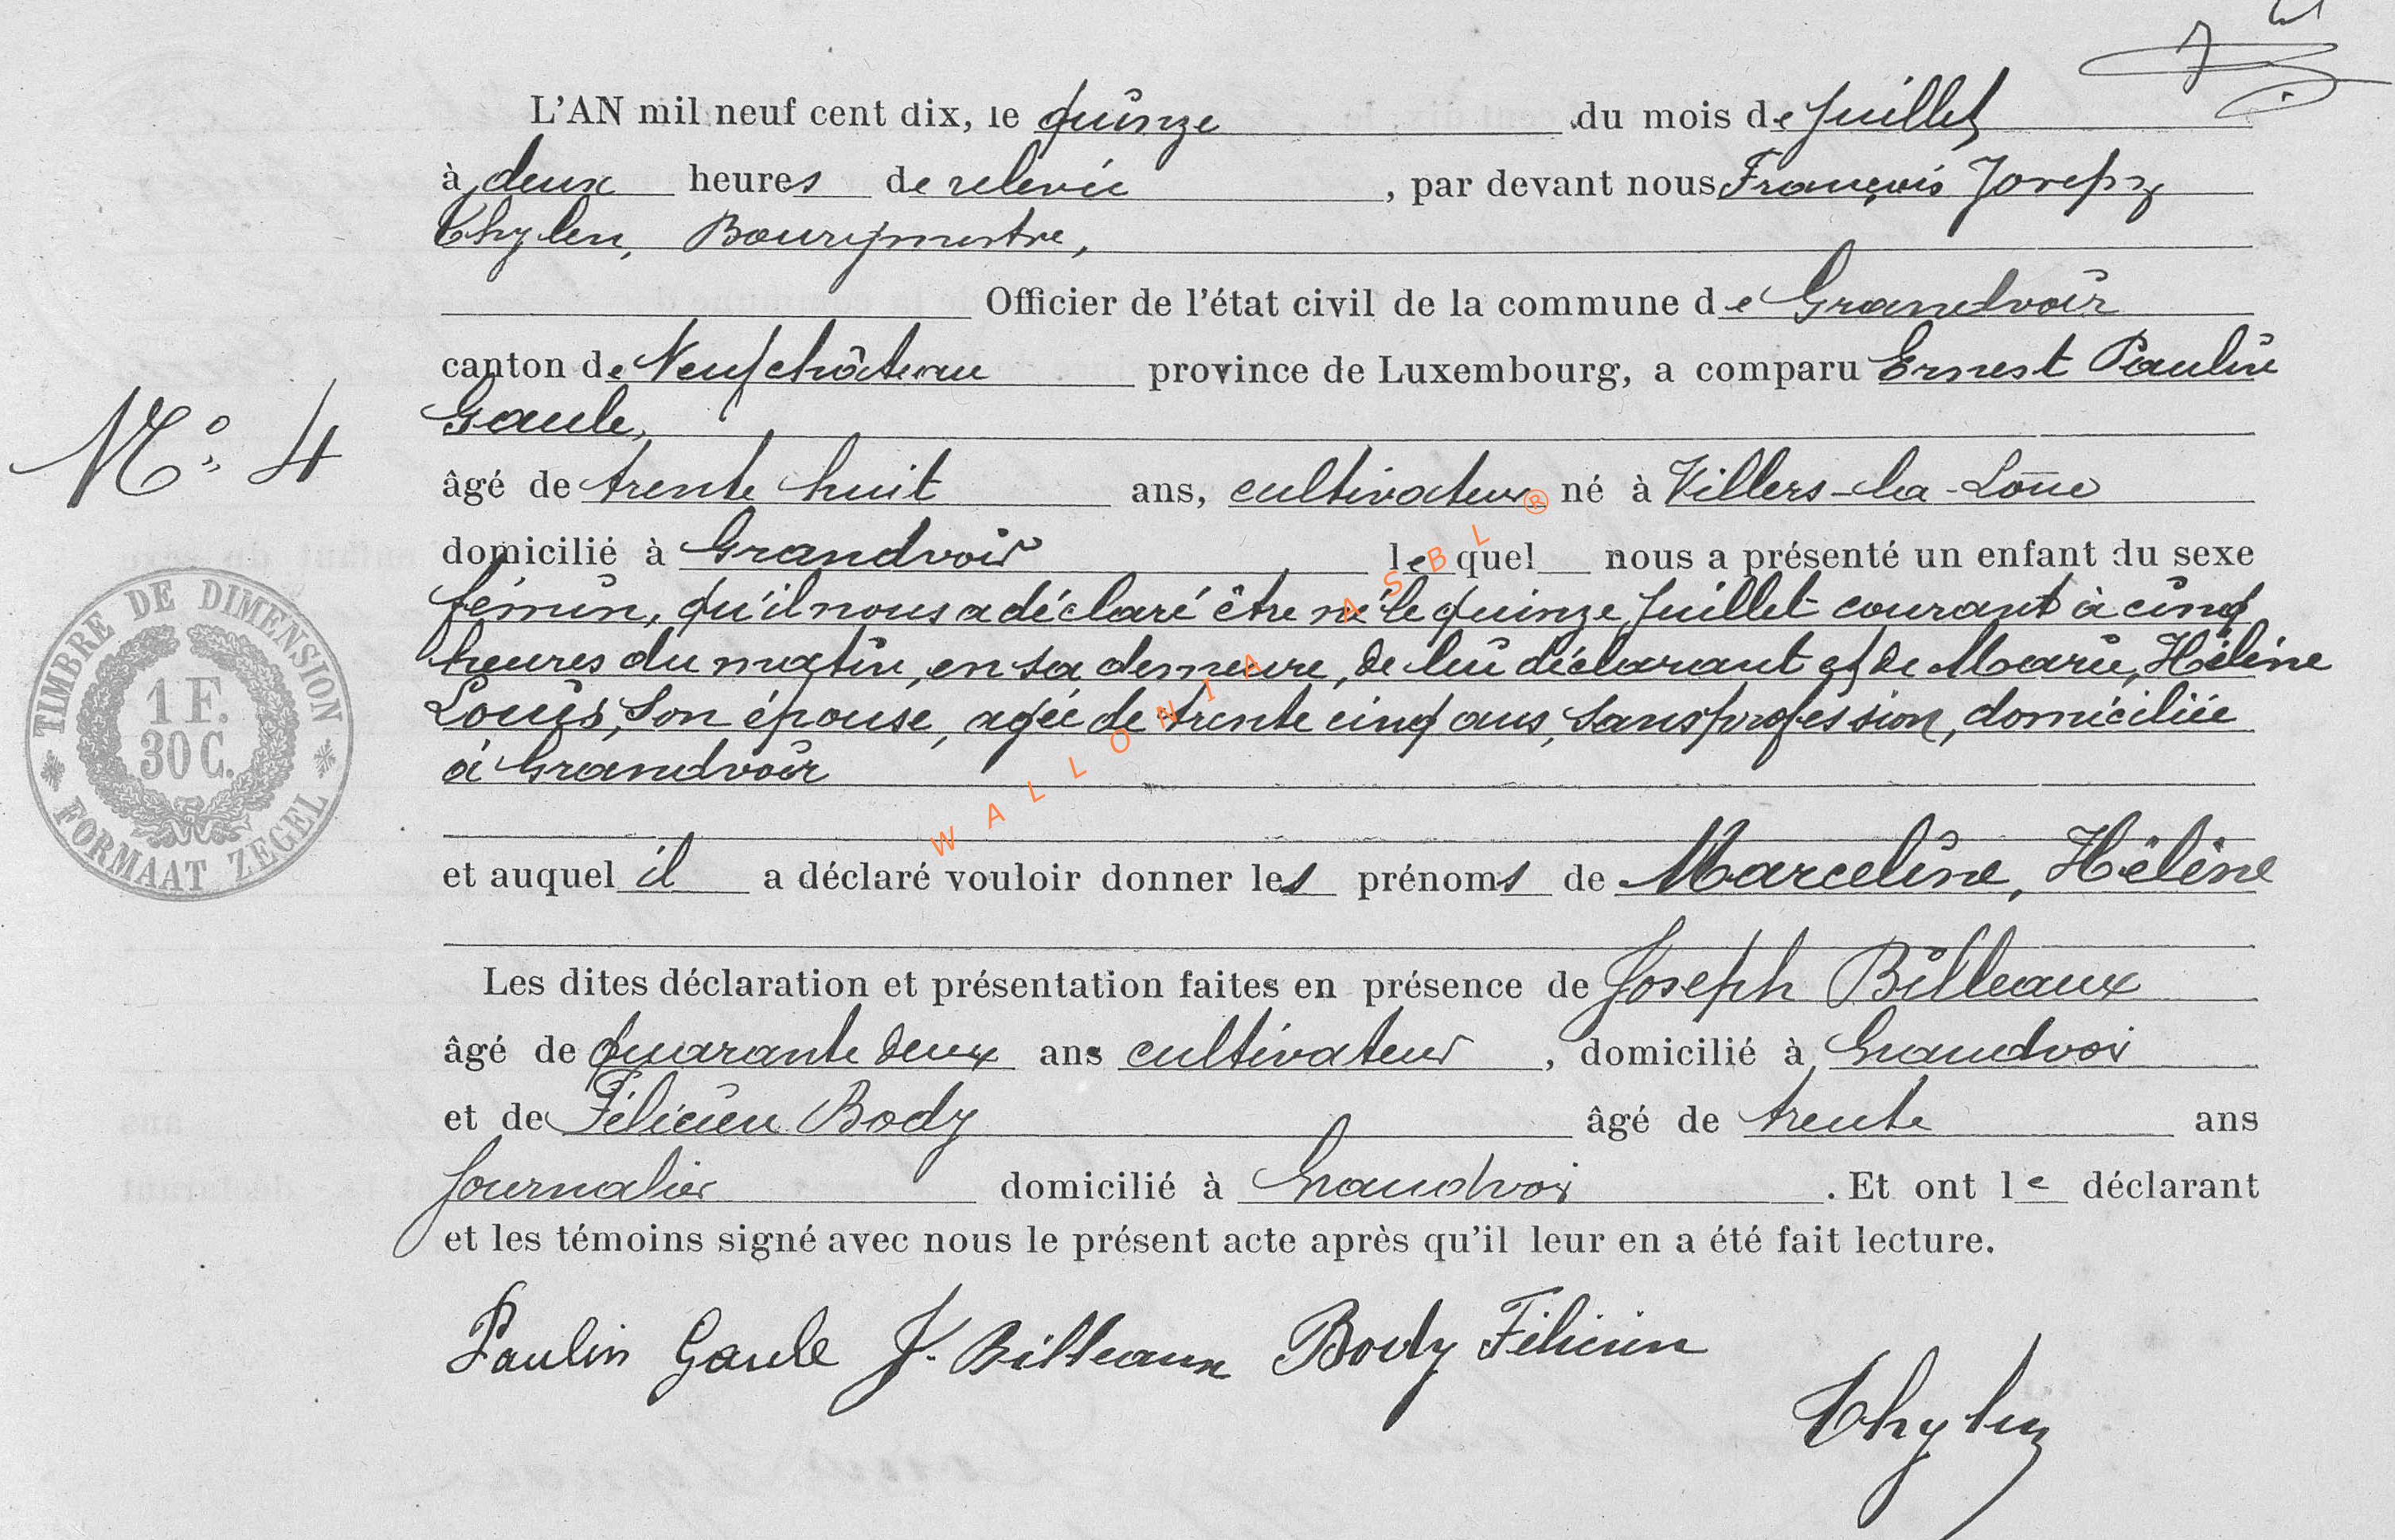 L'AN mil neuf cent dix, le quinze du mois de Juillet
à deux heures de relevée, par devant nous François Joseph
Thylen, Bourgmestre,
Officier de l'état civil de la commune de Grandvoir
canton de Neufchâteau province de Luxembourg, a comparu Ernest Paulin
Gaule,
N° 4
âgé de trente huit ans, cultivateur né à Villers-la-Loue
domicilié à Grandvoir lequel nous a présenté un enfant du sexe
féminin, qu'il nous a déclaré être né le quinze Juillet courant à cinq
heures du matin, en sa demeure, de lui déclarant et de Marie, Hélène
Louis, son épouse, agée de trente cinq ans, sans profession, domiciliée
à Grandvoir
TIMBRE DE DIMENSION
1 F.
30 C.
FORMAAT ZEGEL
WALLONIA ASBL ®
et auquel il a déclaré vouloir donner les prénoms de Marceline, Hélène
Les dites déclaration et présentation faites en présence de Joseph Billeaux
âgé de quarante deux ans cultivateur, domicilié à Grandvoir
et de Félicien Body âgé de trente ans
journalier domicilié à Grandvoir. Et ont le déclarant
et les témoins signé avec nous le présent acte après qu'il leur en a été fait lecture.
Paulin Gaule J. Billeaux Body Félicien
Thylen